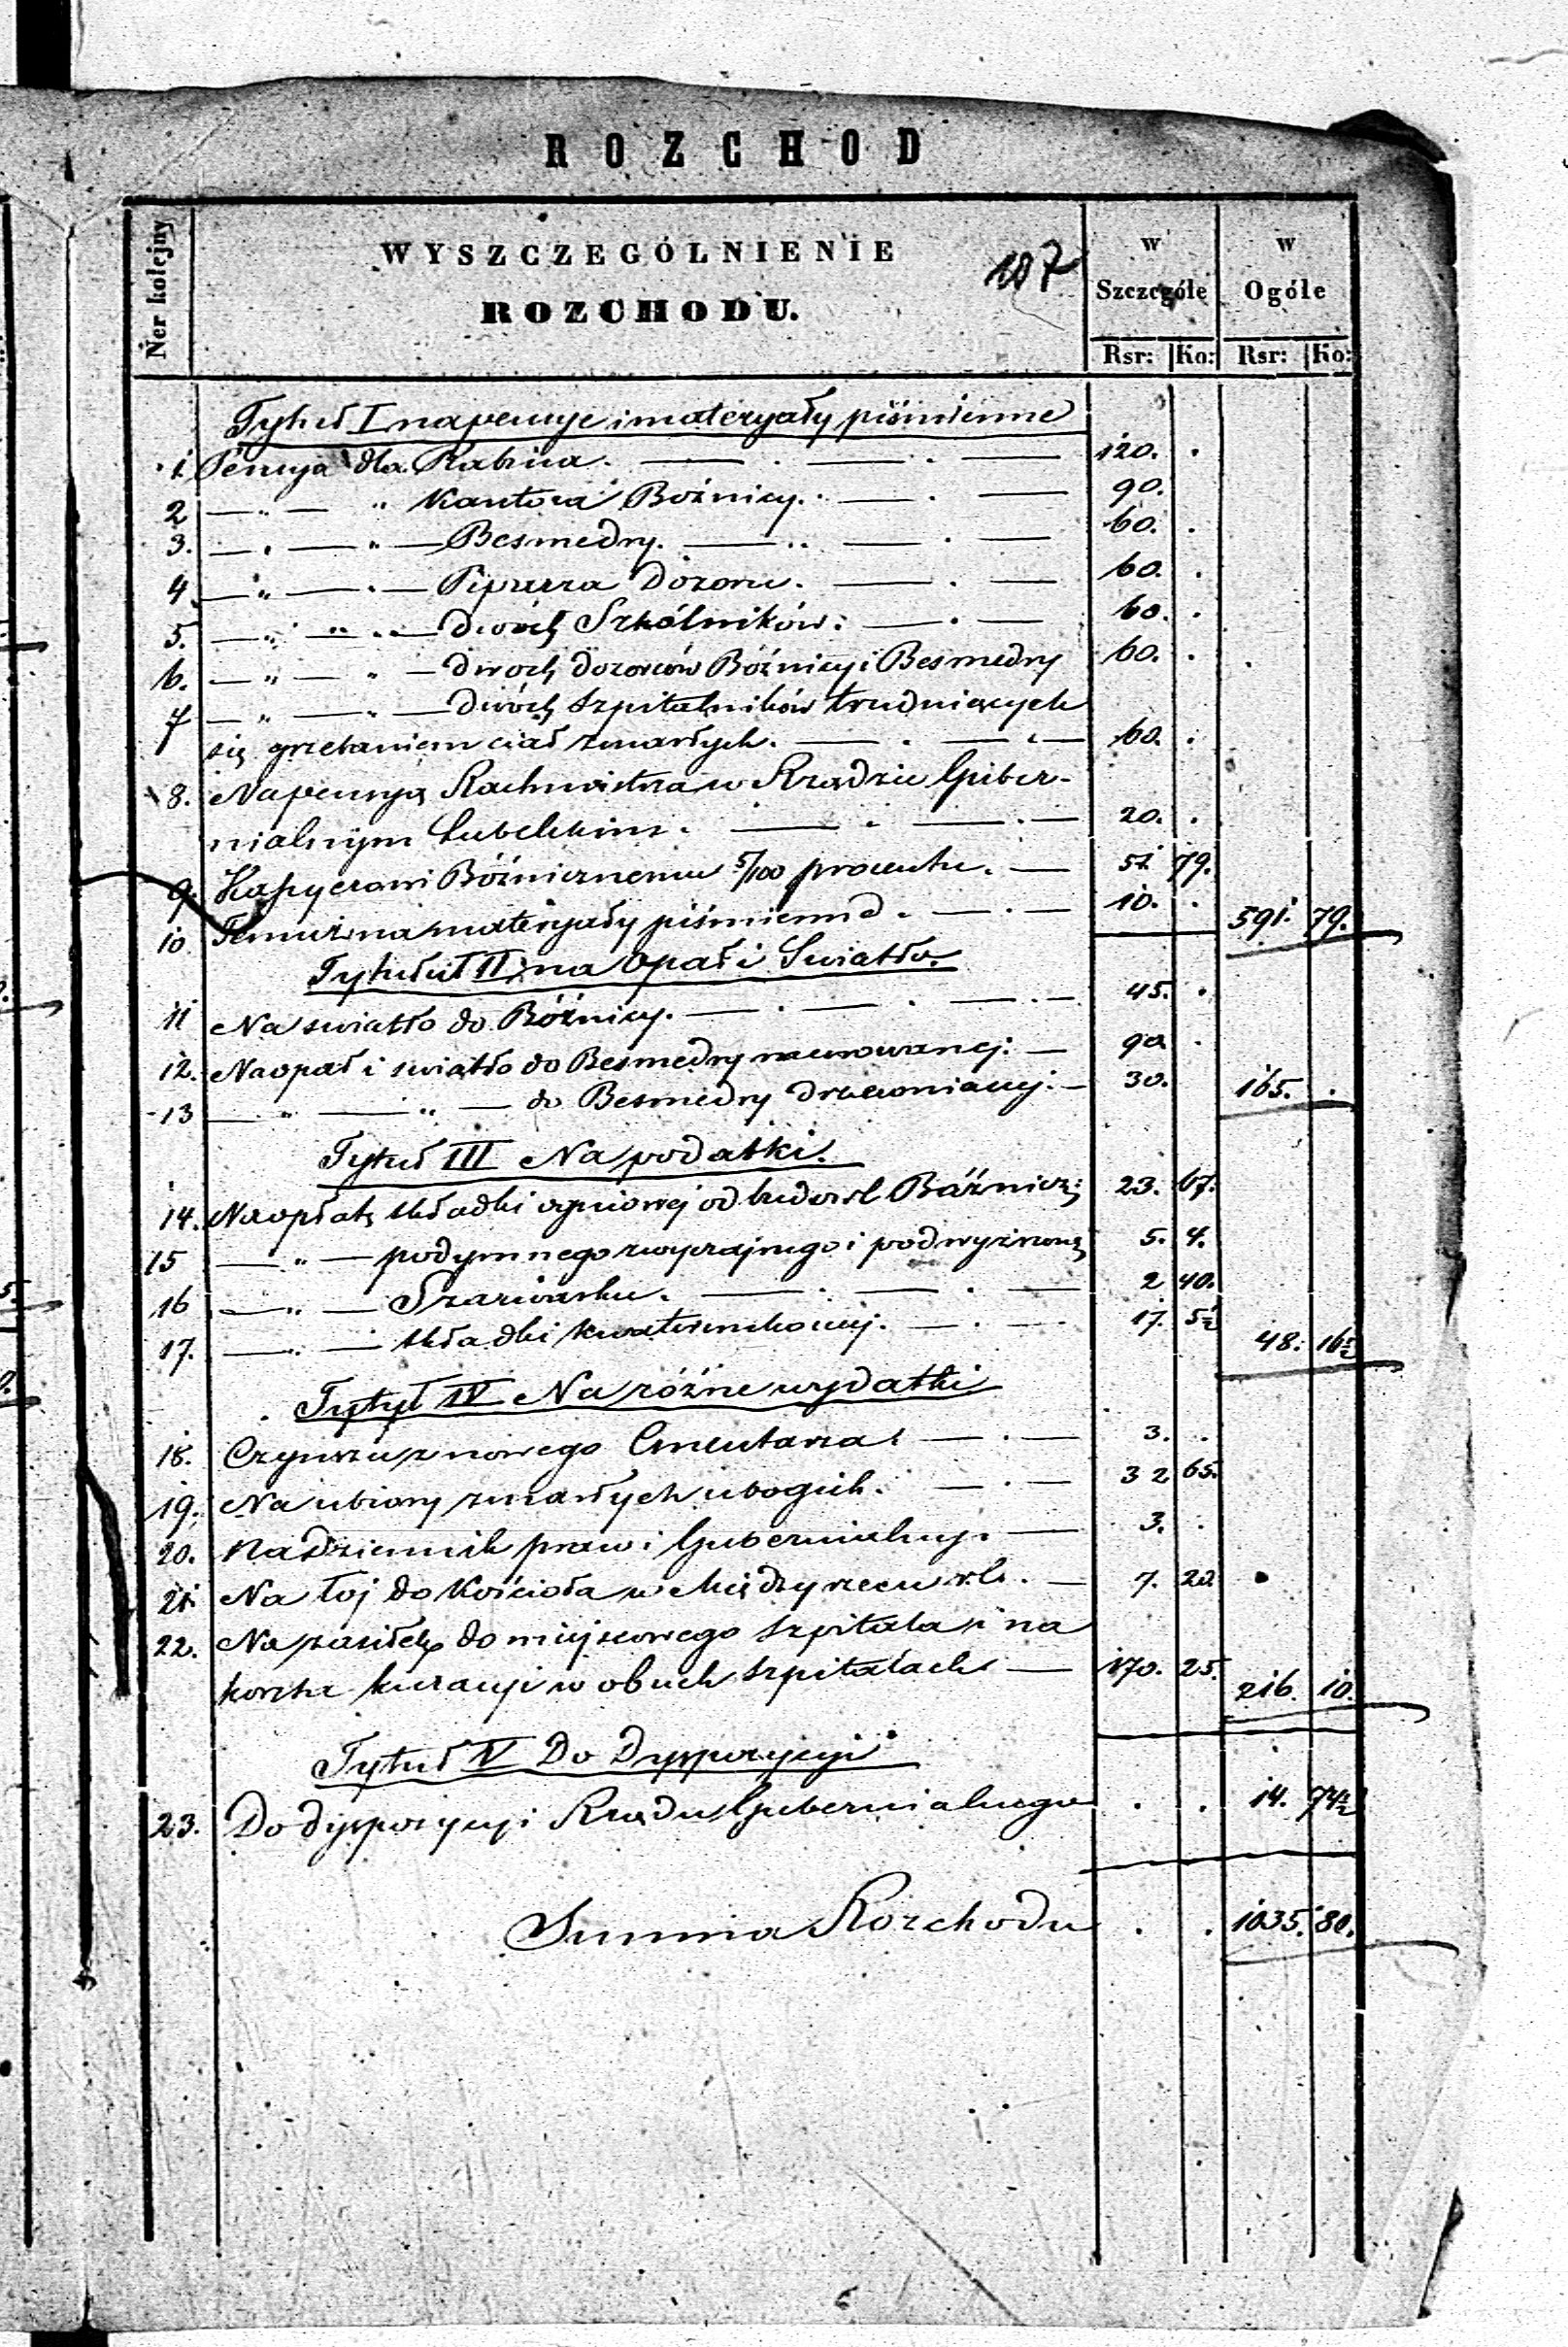 ROZCHOD
Ner kolejny
WYSZCZEGÓLNIENIE
ROZCHODU.
107
w Szczególe
w Ogóle
Rsr: Ko: Rsr: Ko:
Tytuł I na pensye i materyały piśmienne
1. Pensya dla Rabina. 120. .
2 — „ — „ Kantora Bóżnicy. 90.
3. — „ — „ — Besmedry. 60. .
4 — „ — „ — Pisarza Dozoru. 60. .
5. — „ — „ — dwóch Szkólników. 60. .
6. — „ — „ — dwoch dozorców Bóżnicy i Besmedry 60. .
7 — „ — „ — dwóch Szpitalników trudniących
się grzebaniem ciał zmarłych. 60. .
8. Na pensyą Rachmistrza w Rządzie Guber-
nialnym Lubelskim. 20. .
9. Kassyerowi Bóżnicznemu 5/100 procentu. 51 79.
10 Temuż na materyały piśmienne. 10. . 591. 79.
Tytuł II na Opał i Swiatło.
11 Na swiatło do Bóżnicy. 45. .
12. Na opał i swiatło do Besmedry murowanej. 90 .
13 — „ — „ — do Besmedry drewnianej. 30. 165. .
Tytuł III Na podatki.
14. Na opłatę składki ogniowej od budowl Bóżnicz: 23. 67.
15 — „ — podymnego zwyczajnego i podwyższoną 5. 4.
16 — „ — Szarwarku. 2 40.
17. — „ — składki kwaterunkowej. 17. 5½ 48. 16½
Tytuł IV Na różne wydatki
18. Czynszu z nowego Cmentarza. 3. .
19. Na ubiory zmarłych ubogich. 32 65.
20. Na dziennik praw i Gubernialny. 3. .
21. Na łoj do Kościoła w Międzyrzecu 7. 20.
22. Na zasiłek do miejscowego Szpitala i na
koszta kuracyi w obuch Szpitalach 170. 25. 216. 10.
Tytuł V Do Dyspozycyi
23. Do dyspozycyi Rządu Gubernialnego . . 14. 74½
Summa Rozchodu . . 1035. 80.